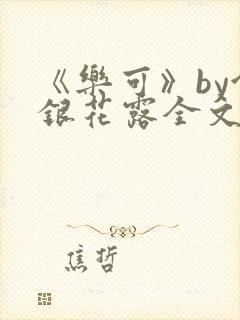 《樂可》by
銀花露全文
焦哲